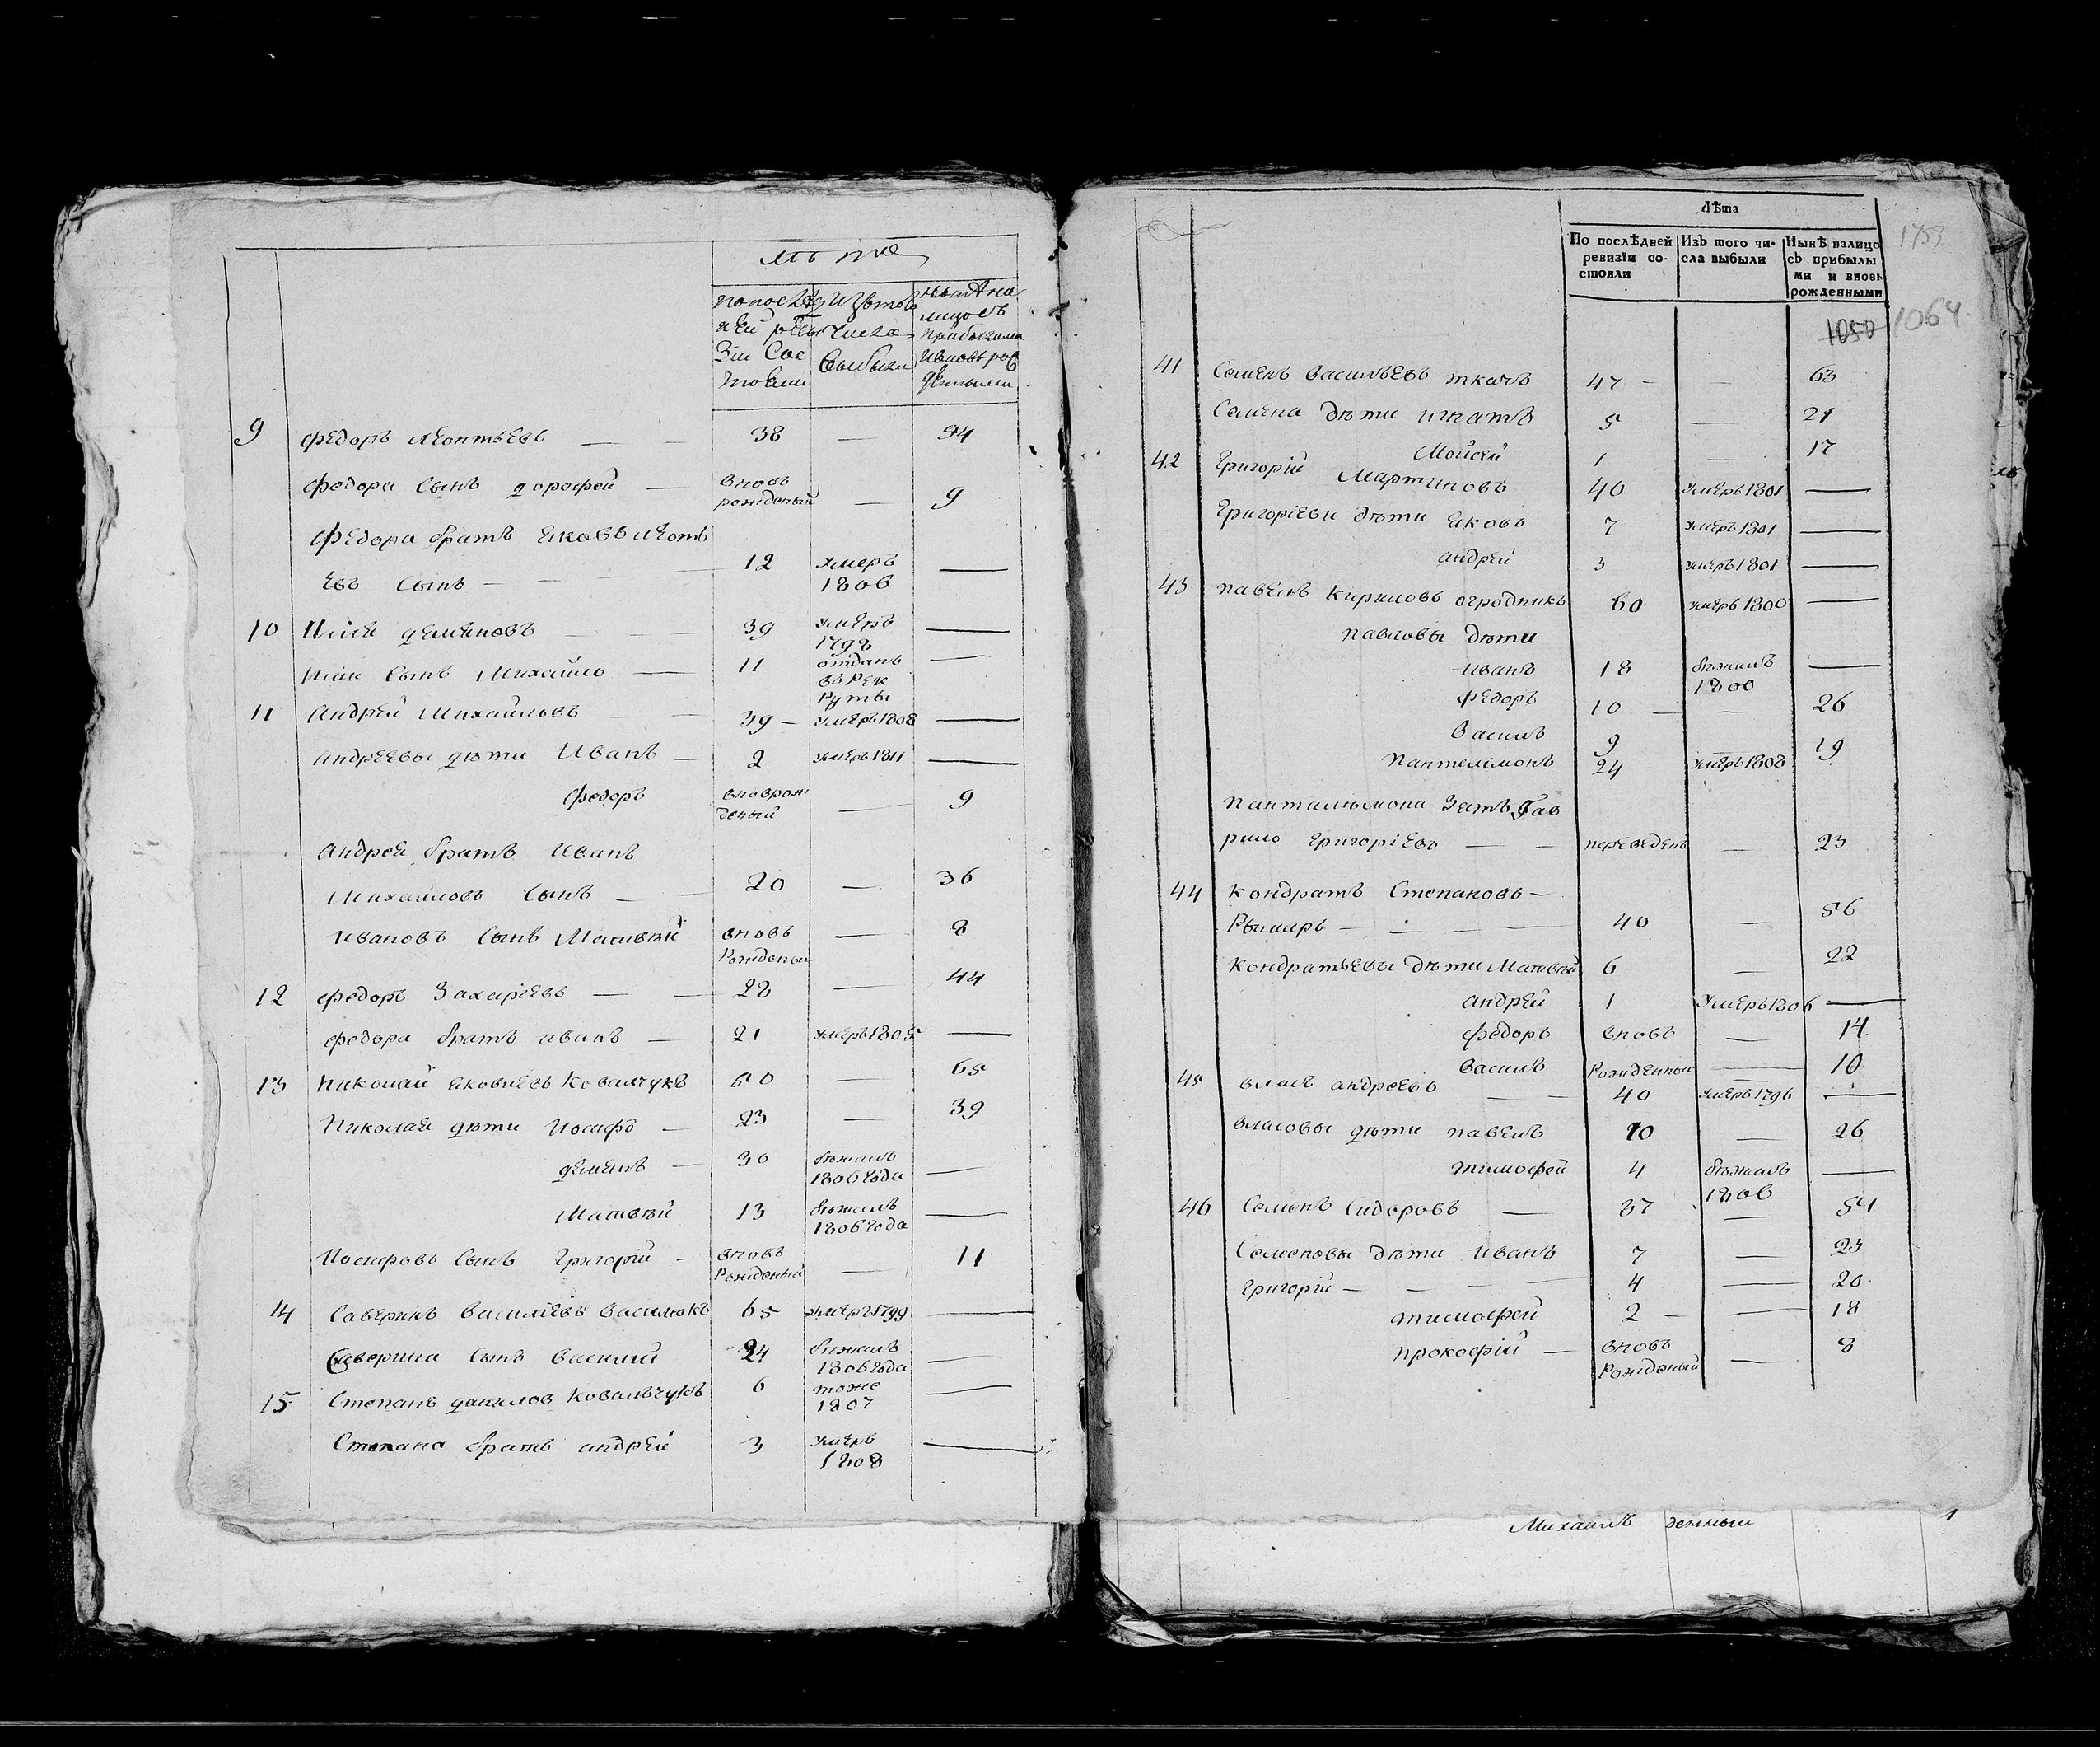 лѣта
по послѣд изъ того нынѣ на
ней реви числа лицо съ
зіи сос выбыли прибылыми
тояли и вновь рож
денными
9 федоръ леонтьевъ — 38 — 54
федора сынъ дорофей — вновь рожденый — 9
федора братъ яковъ леонть
евъ сынъ — 12 умеръ 1806 —
10 илія деменовъ — 39 умеръ 1798 —
иліи сынъ михайло — 11 отданъ въ рекруты —
11 андрей михайловъ — 39 — умеръ 1808 —
андреевы дѣти иванъ — 2 умеръ 1811 —
федоръ вноврожденый — 9
андрея братъ иванъ
михайловъ сынъ — 20 — 36
ивановъ сынъ матвѣй вновь рожденый — 8
12 федоръ захаріевъ — 28 — 44
федора братъ иванъ — 21 умеръ 1805 —
13 николай яковлевъ ковалчукъ 50 — 65
николая дѣти іосифъ — 23 — 39
деменъ — 30 бѣжалъ 1806 года —
матвѣй 13 бѣжалъ 1806 года —
іосифовъ сынъ григорій — вновь рожденый — 11
14 саверинъ василіевъ василюкъ 65 умеръ 1799 —
саверина сынъ василий 24 бѣжалъ 1806 года —
15 степанъ данилов ковальчукъ 6 тоже 1807 —
степана братъ андрей 3 умеръ 1808 —
Лѣта
По послѣдней Изъ того чи- Нынѣ налицо
ревизіи со- сла выбыли съ прибылы
стояли ми и вновь
рожденными
1753
1050 1064
41 семенъ васильевъ ткачъ 47 — — 63
семена дѣти игнатъ 5 — 21
мойсей 1 — 17
42 григорій мартиновъ 40 умеръ 1801 —
григоріеви дѣти яковъ 7 умеръ 1801 —
андрей 3 умеръ 1801 —
43 павелъ кириловъ огродникъ 60 умеръ 1800 —
павловы дѣти
иванъ 18 бѣжалъ 1800 —
федоръ 10 — — 26
василъ 9 — 19
пантелимонъ 24 умеръ 1808
пантальмона зять гав
рило григоріевъ — — переведенъ — 23
44 кондратъ степановъ —
рымаръ — 40 — 56
кондратьевы дѣти матвѣй 6 — 22
андрей 1 умеръ 1806 —
федоръ вновь — 14
василъ рожденный — 10
45 власъ андреевъ — 40 умеръ 1796 —
власовы дѣти павелъ 10 — 26
тимофей 4 бѣжалъ 1806 —
46 семенъ сидоровъ — 37 — 54
семеновы дѣти иванъ 7 — 23
григорій — 4 — 20
тимофей 2 — — 18
прокофій — вновь рожденый — 8
Михаилъ денный 1